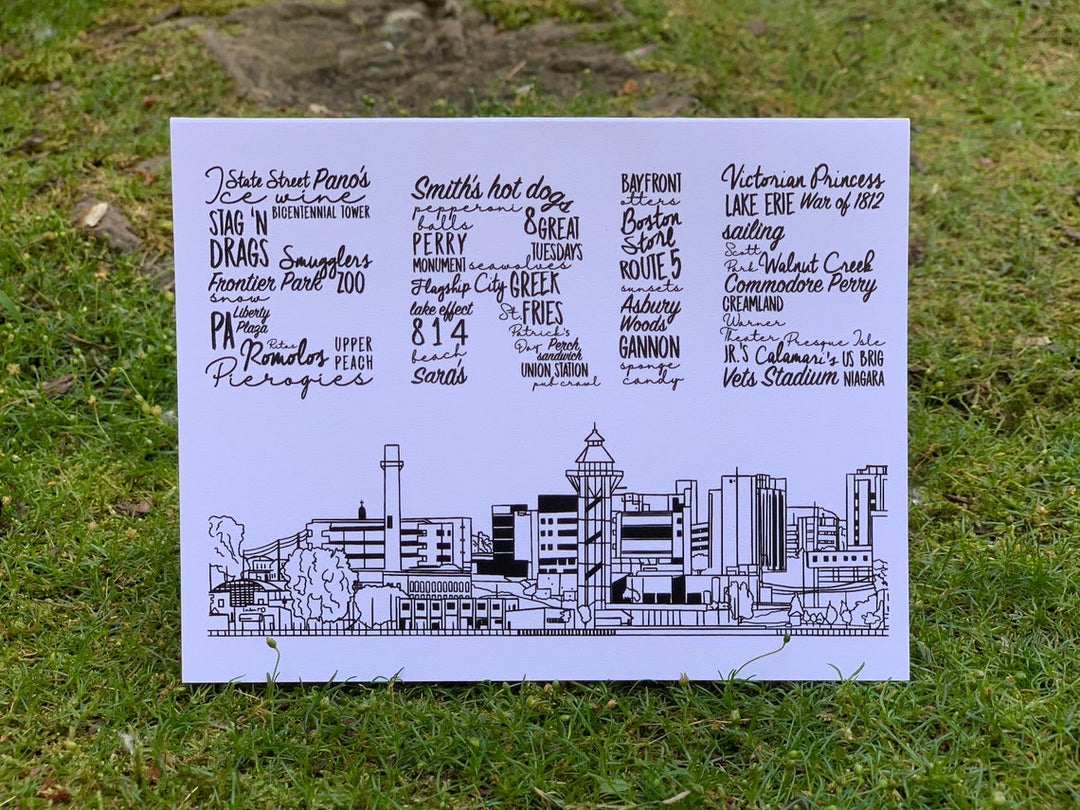 State Street Pano's
Ice wine
STAG 'N BICENTENNIAL TOWER
DRAGS Smugglers
Frontier Park ZOO
snow
PA Liberty
Plaza
Romolos UPPER
PEACH
Pierogies
Smith's hot dogs
pepperoni
balls 8 GREAT
PERRY TUESDAYS
MONUMENT seawolves
Flagship City GREEK
lake effect St. FRIES
814 Patrick's
Day Perch
beach sandwich
Sara's UNION STATION
pub crawl
BAYFRONT
otters
Boston
Store
ROUTE 5
sunsets
Asbury
Woods
GANNON
sponge
candy
Victorian Princess
LAKE ERIE War of 1812
sailing
Scott
Park Walnut Creek
Commodore Perry
CREAMLAND
Warner
Theater Presque Isle
JR.'S Calamari's US BRIG
Vets Stadium NIAGARA